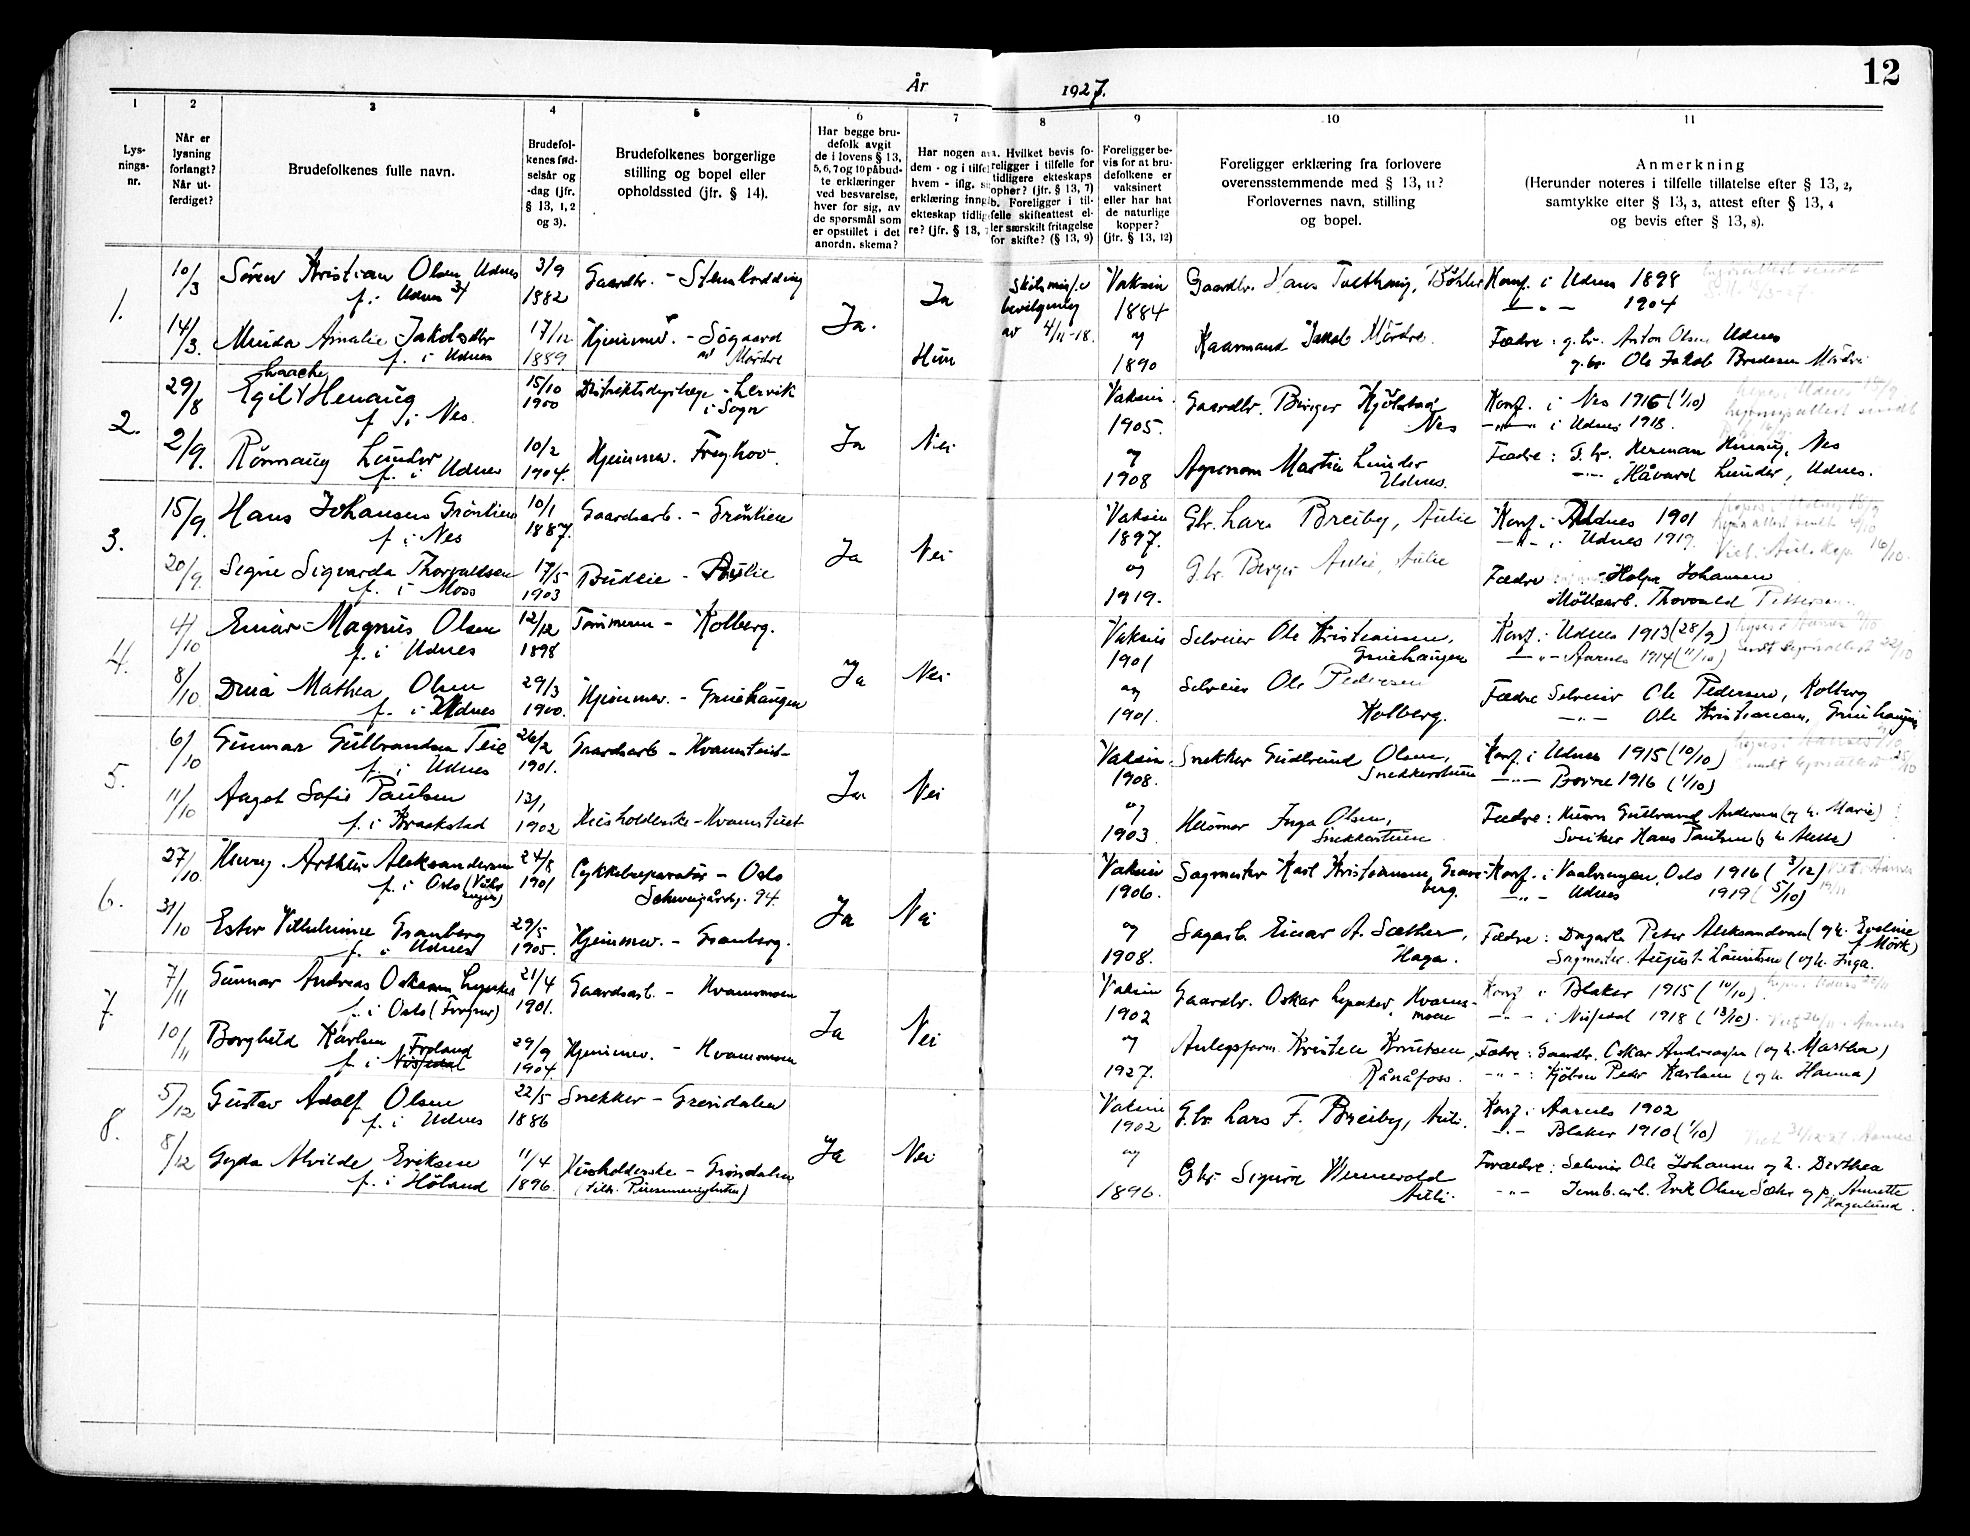 12
År 1927.
1 2 3 4 5 6 7 8 9 10 11
Lys-
nings-
nr.
Når er
lysning
forlangt?
Når ut-
ferdiget?
Brudefolkenes fulle navn.
Brudefol-
kenes fød-
selsår og
-dag (jfr.
§ 13, 1, 2
og 3).
Brudefolkenes borgerlige
stilling og bopel eller
opholdssted (jfr. § 14).
Har begge bru-
defolk avgit
de i lovens § 13,
5, 6, 7 og 10 påbud-
te erklæringer
ved besvarelse,
hver for sig, av
de spørsmål som
er opstillet i det
anordn. skema?
Har nogen av
dem - og i tilfel
hvem - iflg.
erklæring inng
ekteskap tidlig
re? (jfr. § 13,
a. Hvilket bevis fo-
religger i tilfelle for
tidligere ekteskaps
ophør? (jfr. § 13, 7)
b. Foreligger i til-
felle skifteattest el-
ler særskilt fritagelse
for skifte? (§ 13, 9)
Foreligger be-
vis for at bru-
defolkene er
vaksinert
eller har hat
de naturlige
kopper?
(jfr. § 13, 12)
Foreligger erklæring fra forlovere
overensstemmende med § 13, 11?
Forlovernes navn, stilling
og bopel.
Anmerkning
(Herunder noteres i tilfelle tillatelse efter § 13, 2,
samtykke efter § 13, 3, attest efter § 13, 4
og bevis efter § 13, 8).
1.
10/3
Søren Kristian Olsen Udnes
f. i Udnes
3/9
1882
Gaardbr. - Stenbrodding
14/3.
Minda Amalie Jakobsdtr
f. i Udnes
17/12
1889.
Hjemmev. - Søgaard
av Mørdre
Ja.
Ja
Hun
Skilsmisse
bevilgning
av 4/11-18.
Vaksin
1884
og
1890
Gaardbr. Hans Tvethaug, Bøhler
Kaarmand Jakob Mørdre.
Konf. i Udnes 1898
— „ — 1904
Fædre: g.br. Anton Olsen Udnes
g.br. Ole Jakob Bredesen Mørdre
2.
29/8
Haache
Egil Henaug
f. i Nes.
15/10
1900
Distriktsdyrlæge - Lervik
i Sogn
2/9.
Rønnaug Lunder
f. i Udnes
10/2
1904.
Hjemmev. Freghov.
Ja
Nei
Vaksin.
1905.
og
1908
Gaardbr. Birger Hjølstad
Nes
Agronom Martin Lunder
Udnes.
Konf. i Nes 1916 (1/10)
— „ — i Udnes 1918.
Fædre: G.br. Herman Henaug, Nes
— „ — Håvard Lunder, Udnes.
3.
15/9.
Hans Johansen Grønlien
f. i Nes
10/1
1887.
Gaardsarb. - Grønlien
20/9.
Signe Sigvarda Thorvaldsen
f. i Moss
17/5
1903
Budeie - Aulie
Ja
Nei
Vaksin
1897.
og
1919.
Gbr. Lars Breiby, Aulie
G.br. Birger Aulie, Aulie
Konf. i Udnes 1901
— „ — i Udnes 1919.
Fædre: Johansen
Møllearb. Thorvald Pettersen
Viet i Auli kap. 16/10.
4.
4/10
Einar Magnus Olsen
f. i Udnes
12/12
1898
Tømmerm - Kolberg.
8/10
Dina Mathea Olsen
f. i Udnes
29/3
1900.
Hjemmev. - Gruehaugen
Ja
Nei
Vaksin
1901
og
1901.
Selveier Ole Kristiansen,
Gruehaugen
Selveier Ole Pedersen
Kolberg.
Konf. i Udnes 1913 (28/9)
— „ — Aarnes 1914 (11/10)
Fædre Selveier Ole Pedersen, Kolberg
— „ — Ole Kristiansen, Gruehaugen
5.
6/10
Gunnar Gulbrandsen Teie
f. i Udnes
26/2
1901.
Gaardsarb - Kvamstuet
11/10
Aagot Sofie Paulsen
f. i Kraakstad
13/1
1902
Husholderske - Kvamstuet
Ja
Nei
Vaksin
1908.
og
1903
Snekker Gudbrand Olsen,
Snekkerstuen
Husmor Inga Olsen,
Snekkerstuen.
Konf. i Udnes 1915 (10/10)
— „ — Borre 1916 (1/10)
Fædre: Husm. Gulbrand Andersen (og h. Marie)
Sveiser Hans Paulsen
6.
27/10.
Henry Arthur Aleksandersen
f. i Oslo
24/8
1901
Cykkelreparatør - Oslo
Schweigårdsg. 94.
31/10
Ester Vilhelmine Granberg
f. i Udnes
29/5
1905.
Hjemmev. - Granberg.
Ja
Nei
Vaksin
1906.
og
1908.
Sagmester Karl Kristiansen, Gran-
berg.
Sagarb. Einar A. Sæther,
Haga.
Konf. i Vaalerengen, Oslo 1916 (3/12)
— „ — Udnes 1919 (5/10)
Fædre: Dagarb. Peter Aleksandersen (og h. Eveline
f. Mørk)
Sagmester August Lauritsen (og h. Inga.
7.
7/11
Gunnar Andreas Oskarsen Lysaker
f. i Oslo
21/4
1901.
Gaardsarb. - Kvamsmoen
10/11
Borghild Karlsen
Froland
f. i Nissedal
29/9
1904.
Hjemmev. - Kvamsmoen
Ja
Nei
Vaksin
1902
og
1927.
Gaardbr. Oskar Lysaker, Kvams-
moen
Anlegsform. Kristen Knutsen,
Rånåfoss.
Konf. i Blaker 1915 (10/10).
— „ — i Nissedal 1918 (13/10).
Fædre: Gaardbr. Oskar Andreassen (og h. Martha)
— „ —: Kjøbm Peder Karlsen (og h. Hanna)
8.
5/12
Gustav Adolf Olsen
f. i Udnes
22/5
1886
Snekker - Grøndalen
8/12
Gyda Alvilde Eriksen
f. i Høland
11/4
1896.
Husholderske - Grøndalen
Ja
Nei
Vaksin
1902
og
1896.
G.br. Lars F. Breiby, Auli.
Gbr. Sigurd Wennevold
Auli.
Konf. i Aarnes 1902
— „ — Blaker 1910 (1/10)
Forældre: Selveier Ole Johansen og h. Dorthea
— „ — Jernb.arb. Erik Olsen Sæther og p. Annette
Hagelund.